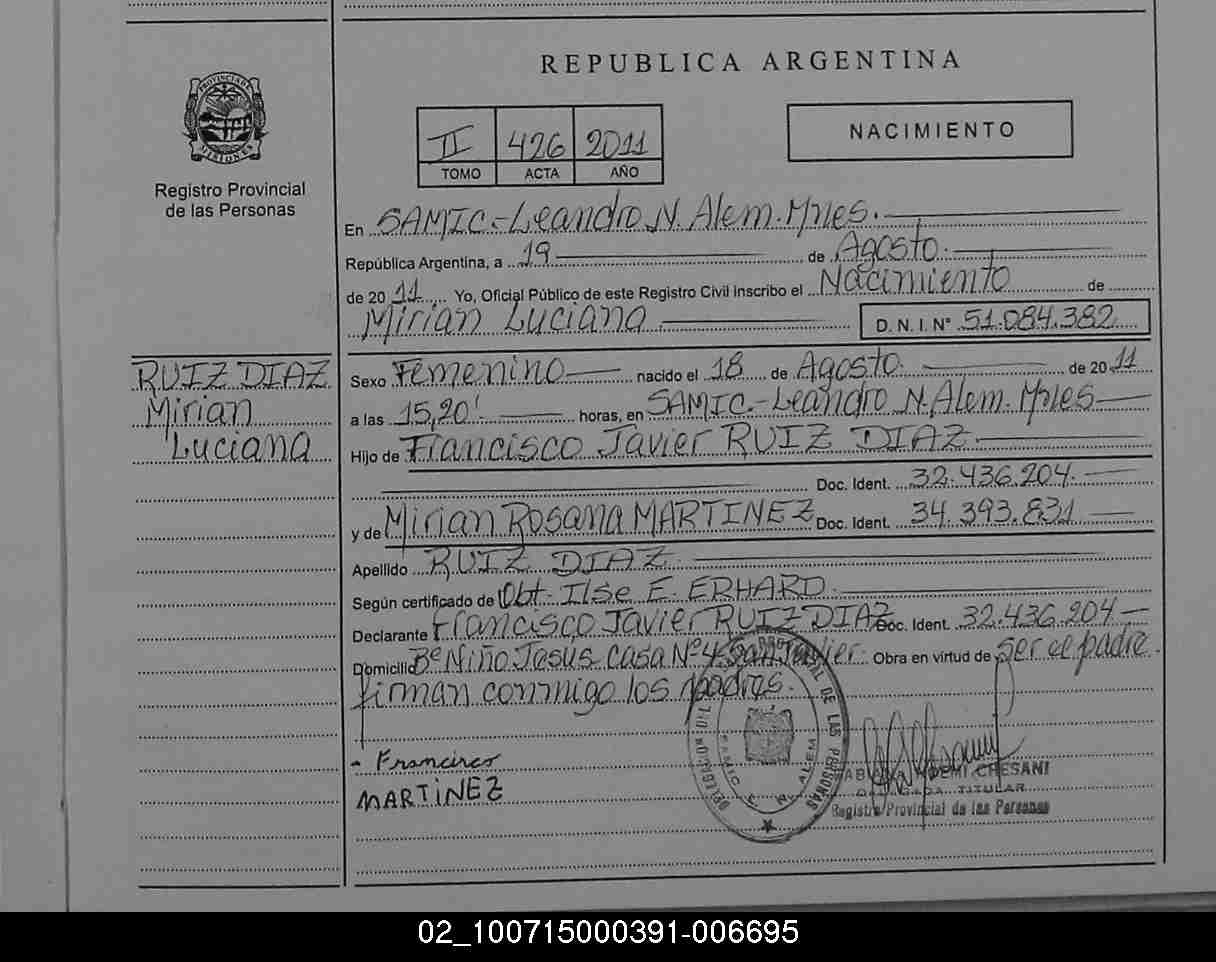 REPUBLICA ARGENTINA
PROVINCIA DE MISIONES
Registro Provincial
de las Personas
II 426 2011
TOMO ACTA AÑO
NACIMIENTO
En SAMIC.-Leandro N. Alem. Mnes.
República Argentina, a 19 de Agosto
de 2011 Yo, Oficial Público de este Registro Civil inscribo el Nacimiento de
Mirian Luciana D. N. I. N° 51.084.382
RUIZ DIAZ
Mirian
Luciana
Sexo Femenino nacido el 18 de Agosto de 2011
a las 15,20' horas, en SAMIC.-Leandro N. Alem. Mnes
Hijo de Francisco Javier RUIZ DIAZ
Doc. Ident. 32.436.204.
y de Mirian Rosana MARTINEZ Doc. Ident. 34.393.831
Apellido RUIZ DIAZ.
Según certificado de Obt. Ilse E. ERHARD.
Declarante Francisco Javier RUIZ DIAZ Doc. Ident. 32.436.204
Domicilio B° Niño Jesus Casa N° 4 San Javier. Obra en virtud de ser el padre.
firman conmigo los padres.
- Francisco
MARTINEZ
PROVINCIAL DE LAS PERSONAS
SAMIC L. N. ALEM
NOEMI CHESANI
TITULAR
Registro Provincial de las Personas
02_100715000391-006695